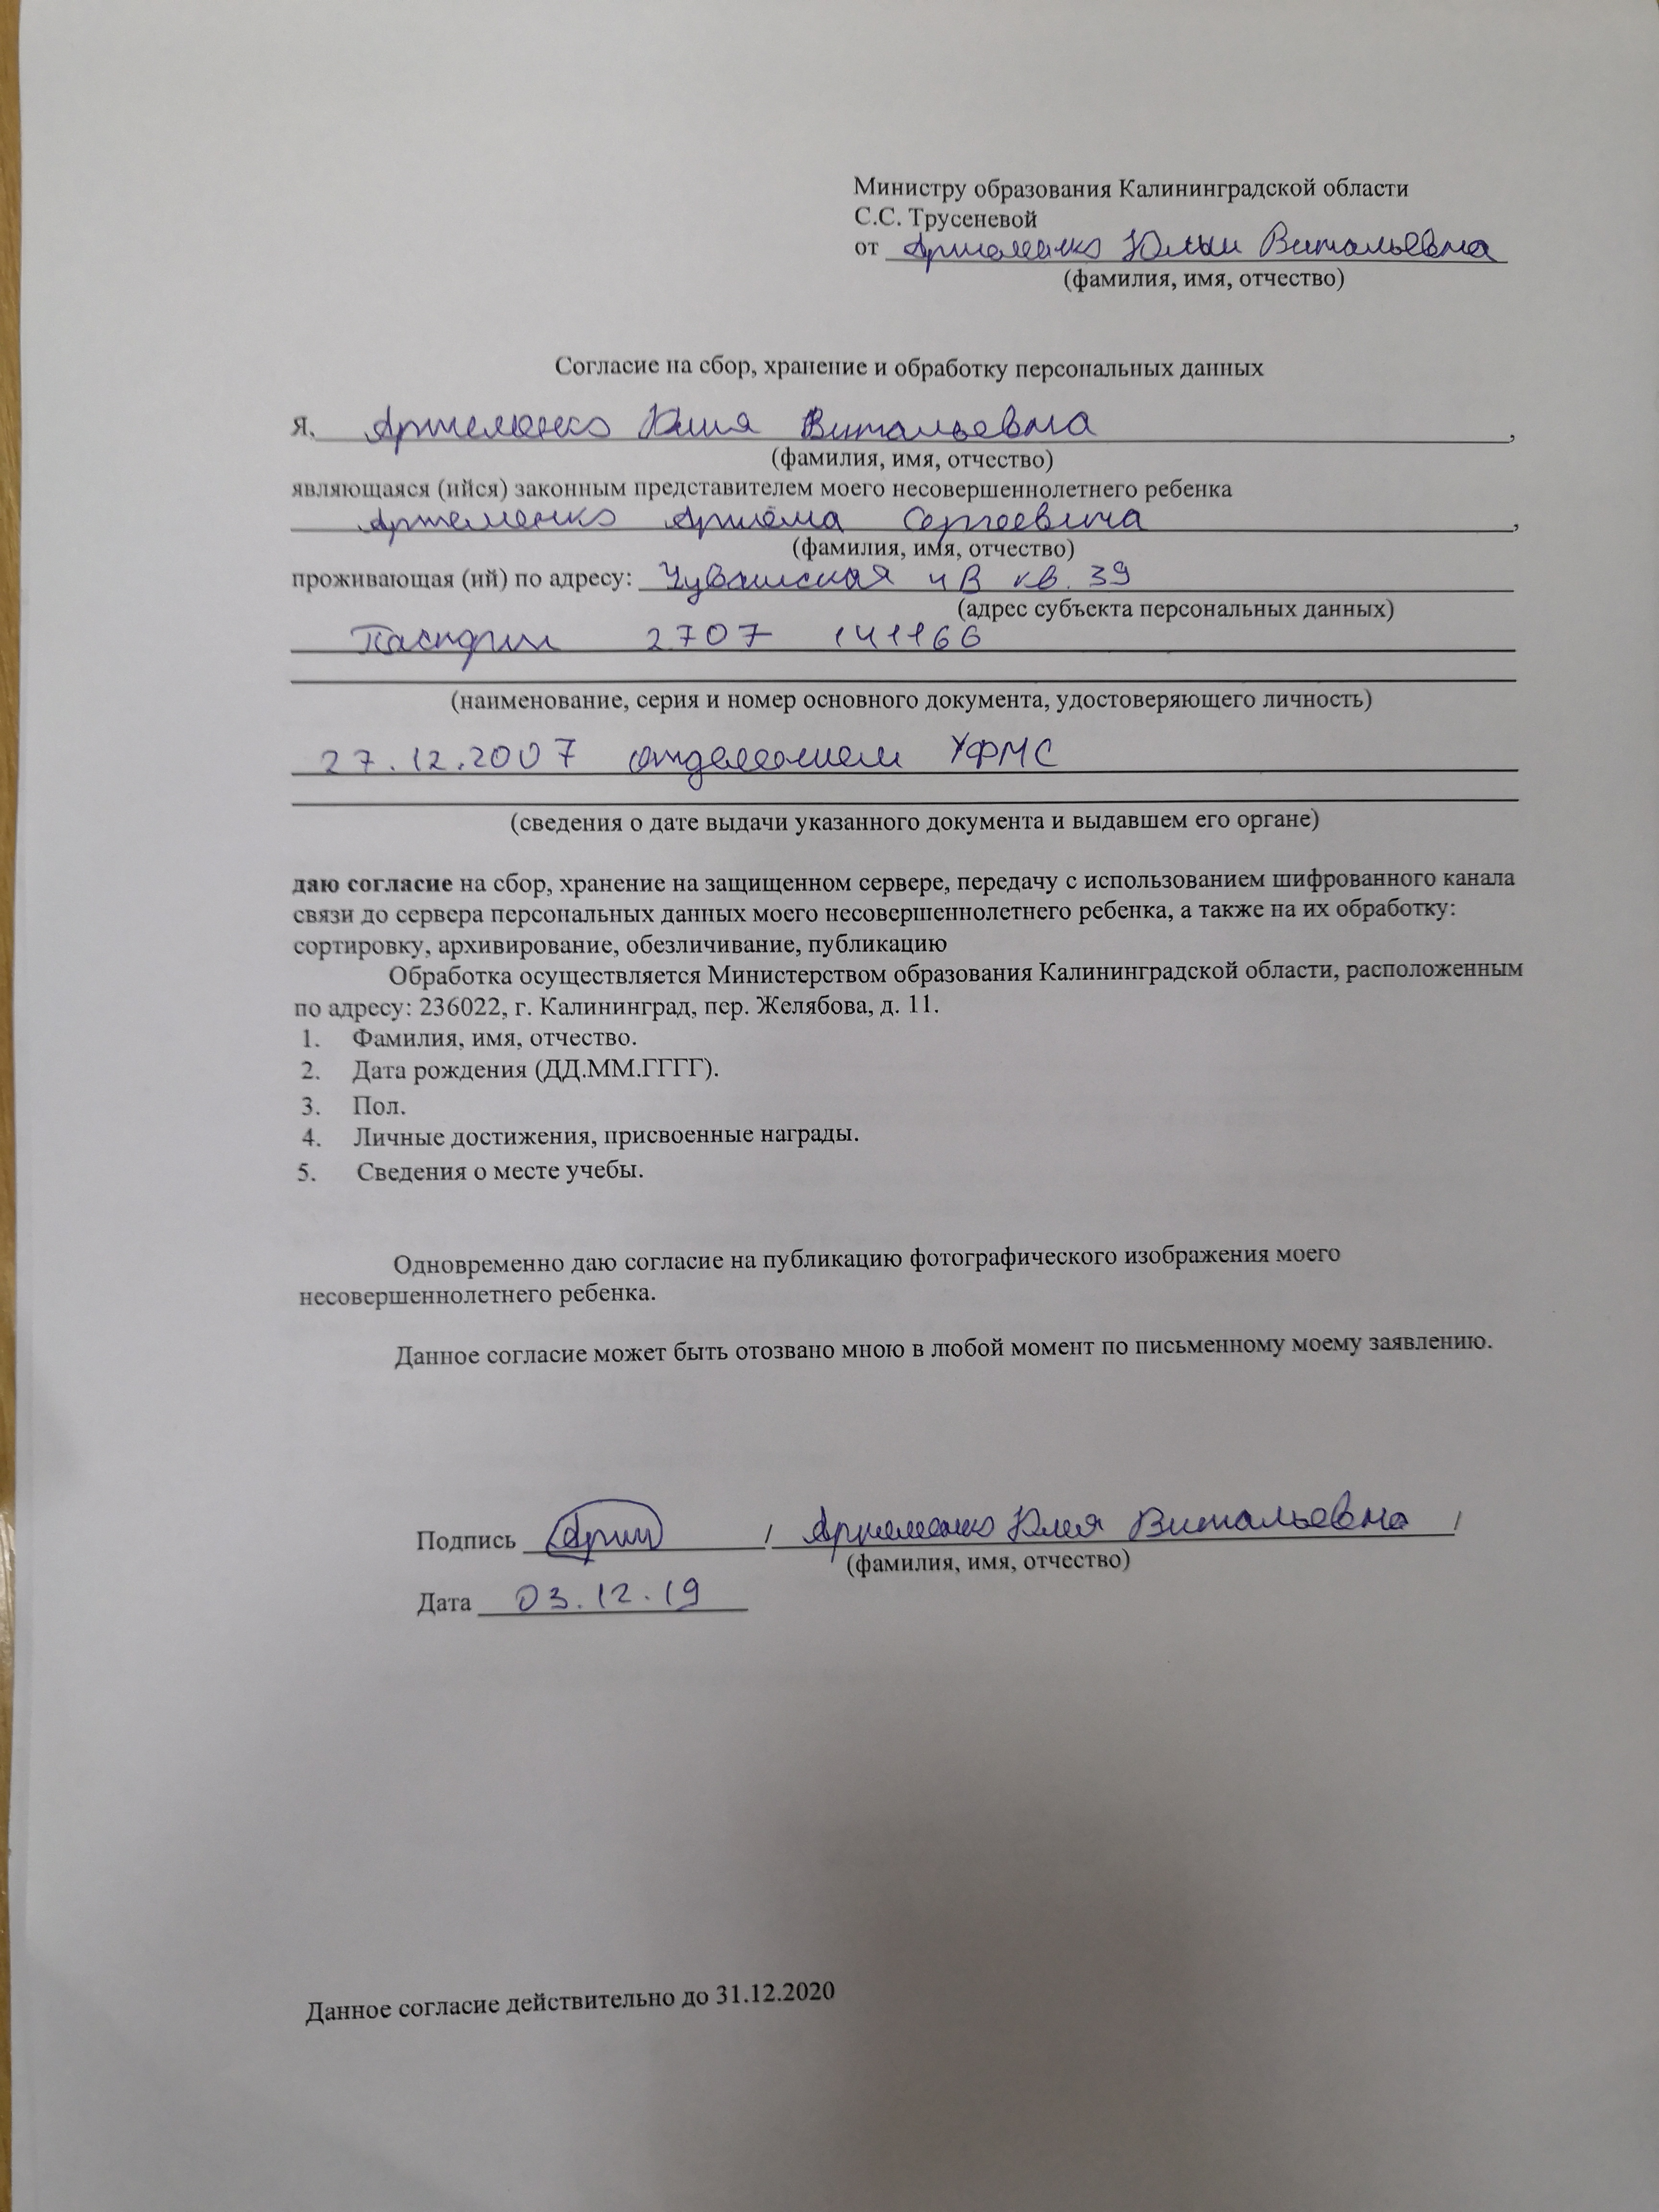 Министру образования Калининградской области
С.С. Трусеневой
от Артеменко Юлии Витальевна
(фамилия, имя, отчество)
Согласие на сбор, хранение и обработку персональных данных
Я, Артеменко Юлия Витальевна,
(фамилия, имя, отчество)
являющаяся (ийся) законным представителем моего несовершеннолетнего ребенка
Артеменко Артёма Сергеевича,
(фамилия, имя, отчество)
проживающая (ий) по адресу: Чувашская 4В кв. 39
(адрес субъекта персональных данных)
Паспорт 2707 141166
(наименование, серия и номер основного документа, удостоверяющего личность)
27.12.2007 отделением УФМС
(сведения о дате выдачи указанного документа и выдавшем его органе)
даю согласие на сбор, хранение на защищенном сервере, передачу с использованием шифрованного канала
связи до сервера персональных данных моего несовершеннолетнего ребенка, а также на их обработку:
сортировку, архивирование, обезличивание, публикацию
Обработка осуществляется Министерством образования Калининградской области, расположенным
по адресу: 236022, г. Калининград, пер. Желябова, д. 11.
1. Фамилия, имя, отчество.
2. Дата рождения (ДД.ММ.ГГГГ).
3. Пол.
4. Личные достижения, присвоенные награды.
5. Сведения о месте учебы.
Одновременно даю согласие на публикацию фотографического изображения моего
несовершеннолетнего ребенка.
Данное согласие может быть отозвано мною в любой момент по письменному моему заявлению.
Подпись / Артеменко Юлия Витальевна /
(фамилия, имя, отчество)
Дата 03.12.19
Данное согласие действительно до 31.12.2020